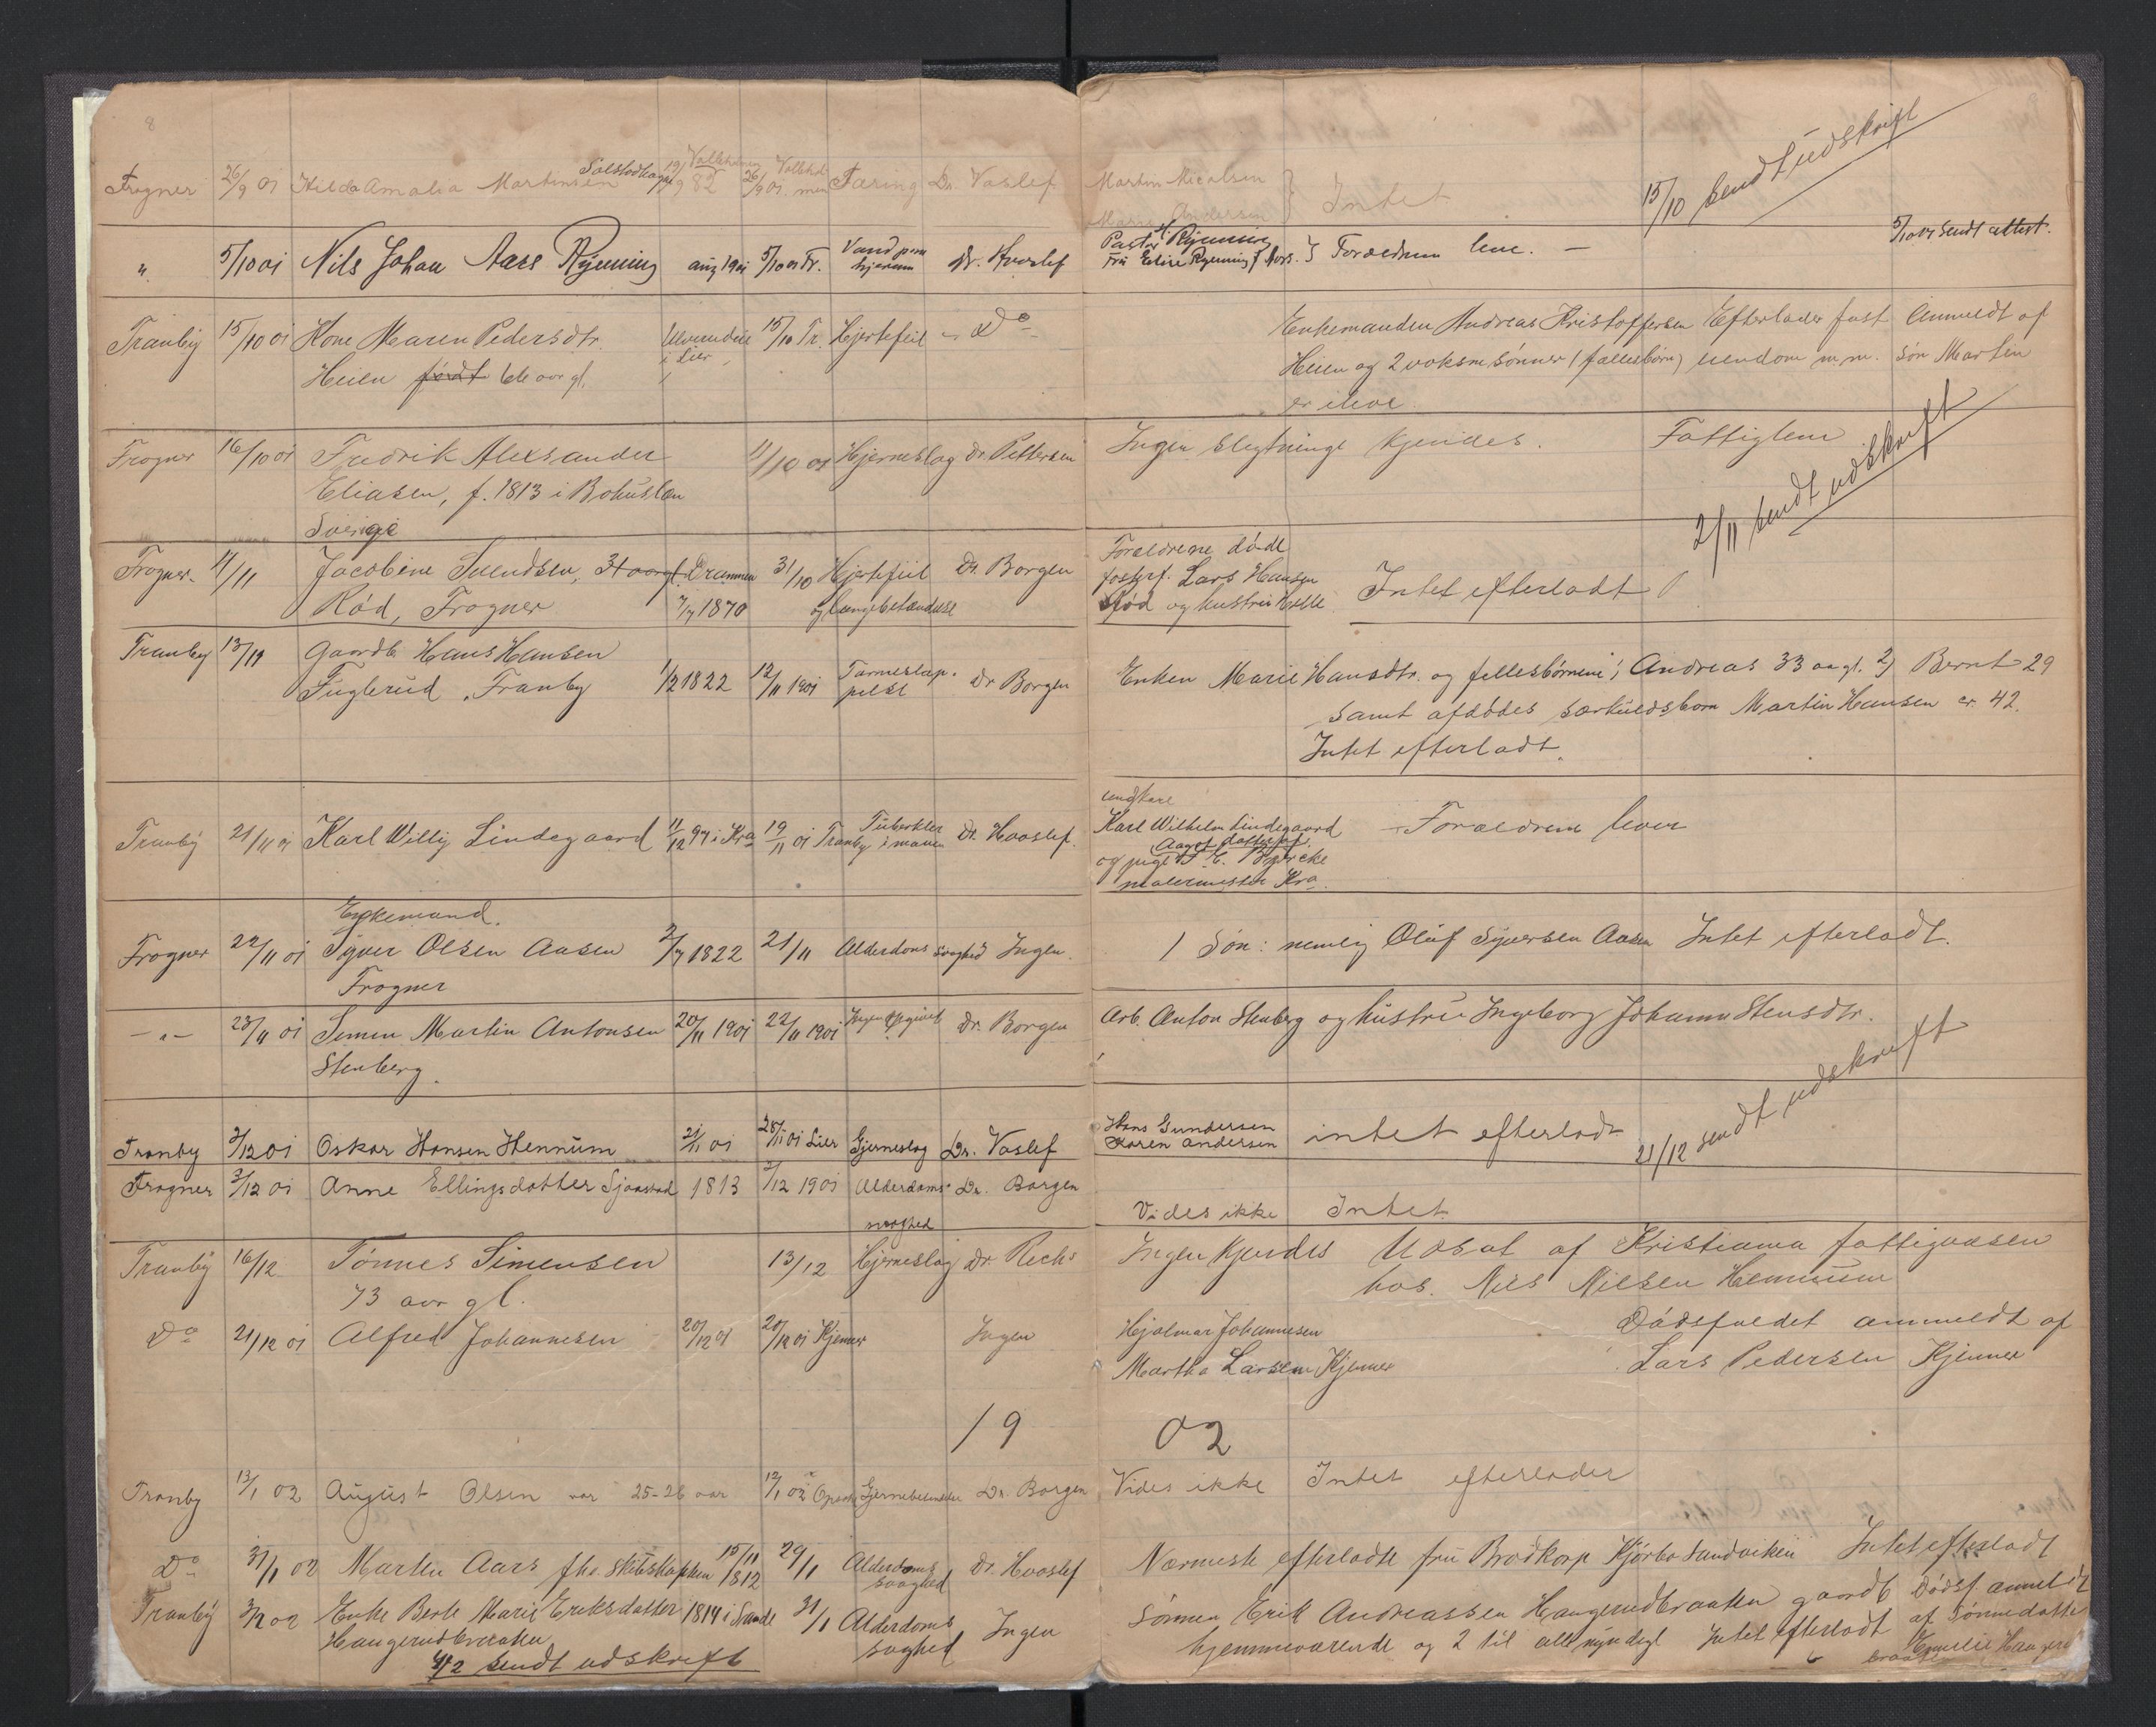 8
Frogner 26/9 01 Hilda Amalia Martinsen 19/9 82 26/9 01. Tæring Dr. Voslef Martin Nicolsen } Intet
Marie Andersen
15/10 sendt udskrift
" 5/10 01 Nils Johan Aars Rynning aug 1901 5/10 01 Tr. Vand paa hjernen Dr. Hvoslef Pastor Rynning
Fru Elise Rynning f. Aars. } Forældrene leve. —
5/10 01 sendt attest.
Tranby 15/10 01 Kone Maren Pedersdtr. i Lier 15/10 Tr. Hjertefeil " Do Enkemanden Andreas Kristoffersen Efterlader fast Anmeldt af
Heien født aar gl. Heien og 2 voksne sønner (fællesbørn) eiendom m.m. søn Martin
er ilive.
Frogner 16/10 01 Fredrik Alexsander 11/10 01 Hjerneslag Dr. Pettersen Ingen slegtninge kjendes. Fattiglem
Eliasen, f. 1813 i Bohuslen
Sverige
2/11 sendt udskrift
Frogner. 1/11 Jacobine Svendsen, 31 aar gl. Drammen 31/10 Hjertefeil Dr. Borgen Forældrene døde
Rød, Frogner 7/7 1870 og lungebetændelse fosterf. Lars Hansen
Rød og hustru Intet efterladt
Tranby 13/11 Gaardb. Hans Hansen
Fuglerud, Tranby 1/2 1822 12/11 1901 Dr Borgen Enken Marie Hansdtr. og fellesbørnene 1, Andreas 33 aa gl. 2, Bernt 29
samt afdødes særkuldsbarn Martin Hansen er 42.
Intet efterladt.
Tranby 21/11 01 Karl Willy Lindegaard 11/12 97 i Kra 19/11 01 Tranby Tuberkler i maven Dr. Hvoslef. ungkarl
Karl Wilhelm Lindegaard — Forældrene lever
og pige Aagot datter af
malermester Kra.
Enkemand.
Frogner 22/11 01 Syver Olsen Aasen 2/7 1822 21/11 Alderdoms svaghed Ingen. 1 Søn: nemlig Oluf Syversen Aasen Intet efterladt.
Frogner
— " — 23/11 01 Simen Martin Antonsen 20/11 1901 22/11 1901 Ingen opgivet Dr. Borgen Arb. Anton Stenberg og hustru Ingeborg Johanne Stensdtr.
Stenberg.
21/12 sendt udskrift
Tranby 2/12 01 Oskar Hansen Hennum 21/11 01 28/11 01 Lier Hjerneslag Dr. Voslef Hans Gundersen
Karen Andersen intet efterladt
Frogner 3/12 01 Anne Ellingsdatter Sjaastad 1813 2/12 1901 Alderdoms- Dr. Borgen
svaghed Vides ikke Intet
Tranby 16/12 Tønnes Simensen 13/12 Hjerneslag Dr. Rechs Ingen kjendes Udsat af Kristiania fattigvæsen
73 aar gl. hos. Nils Nielsen Hennum
Do 21/12 01 Alfred Johannesen 20/12 01 20/12 01 Kjenner Ingen Hjalmar Johannesen Dødsfaldet anmeldt af
Martha Larsen Kjenner Lars Pedersen Kjenner
19 02
Tranby 13/1 02 August Olsen var 25-26 aar 12/1 02 Dr. Borgen Vides ikke Intet efterlader
Do 31/1 02 Marthe Aars 15/11 1812 29/1 Alderdoms svaghed Dr. Hvoslef Nærmeste efterladte fru Brodkorp Kjørbo Sandviken Intet efterladt
Tranby 3/2 02 Enke Berte Marie Eriksdatter 1814 i Sande 31/1 Alderdoms svaghed Ingen Sønnen Erik Andreassen Haugerudbraaten gaardb Dødsf. anmeldt
Haugerudbraaten hjemmeværende og 2 til alle myndige Intet efterladt af Sønnedatter
4/2 sendt udskrift